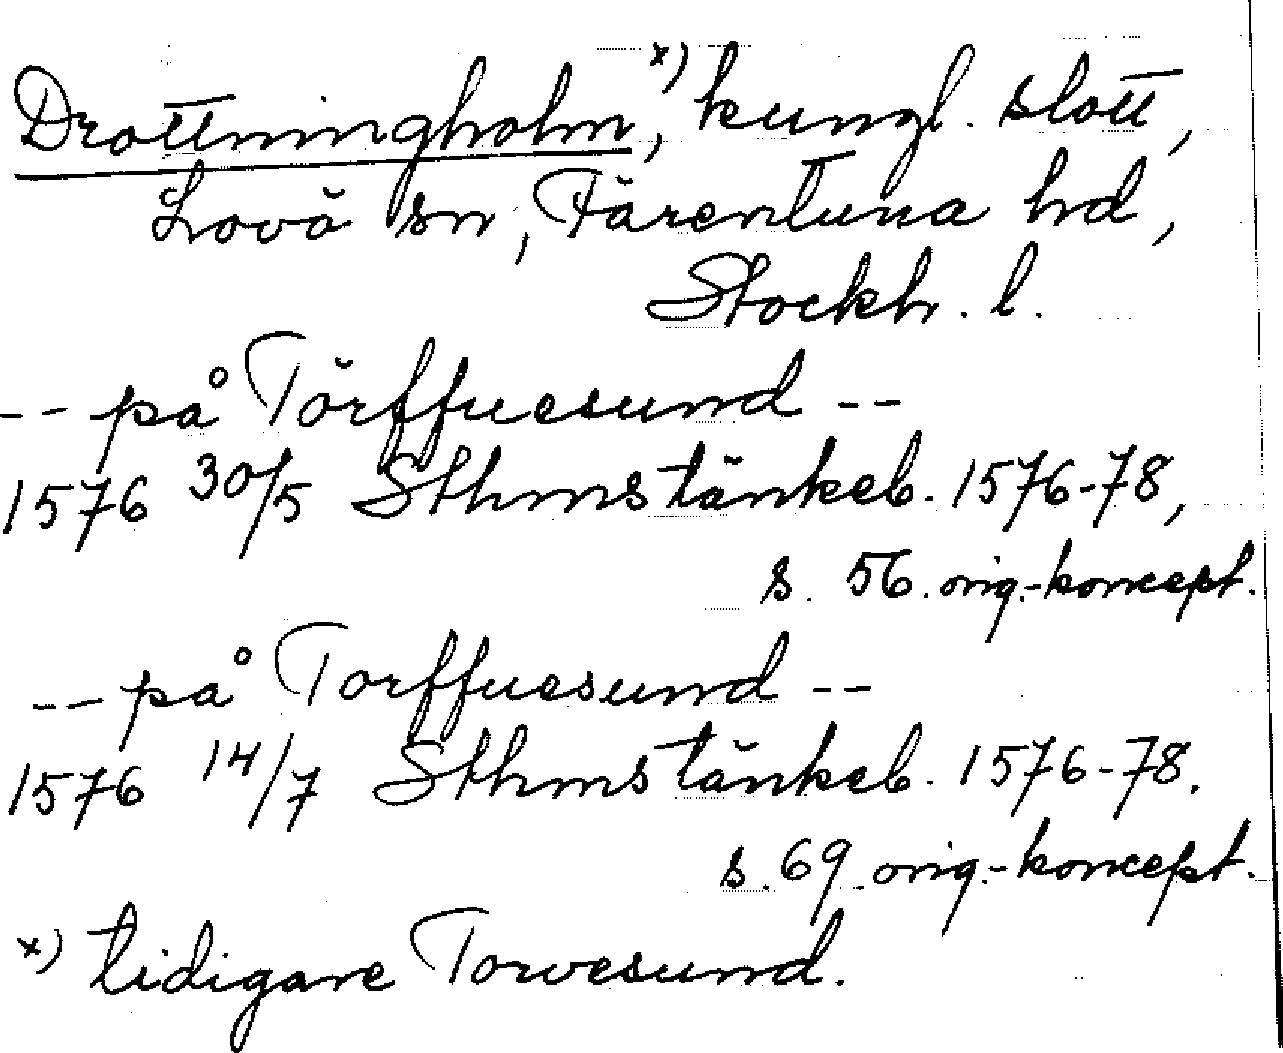 Drottningholm, x) kungl. slott,
Lovö sn, Färentuna hd,
Stockh. l.
-- på Törffuesund --
1576 30/5 Sthms tänkeb. 1576-78,
s. 56. orig.-koncept.
-- på Torffuesund --
1576 14/7 Sthms tänkeb. 1576-78.
s. 69. orig.-koncept.
x) tidigare Torvesund.